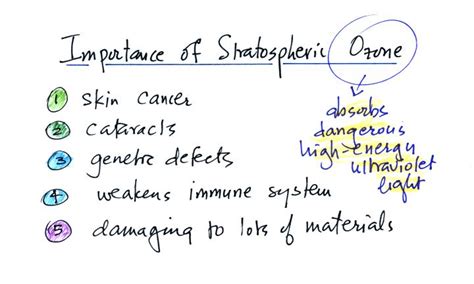 Importance of Stratospheric Ozone
absorbs
dangerous
high-energy
ultraviolet
light
1 skin cancer
2 cataracts
3 genetic defects
4 weakens immune system
5 damaging to lots of materials